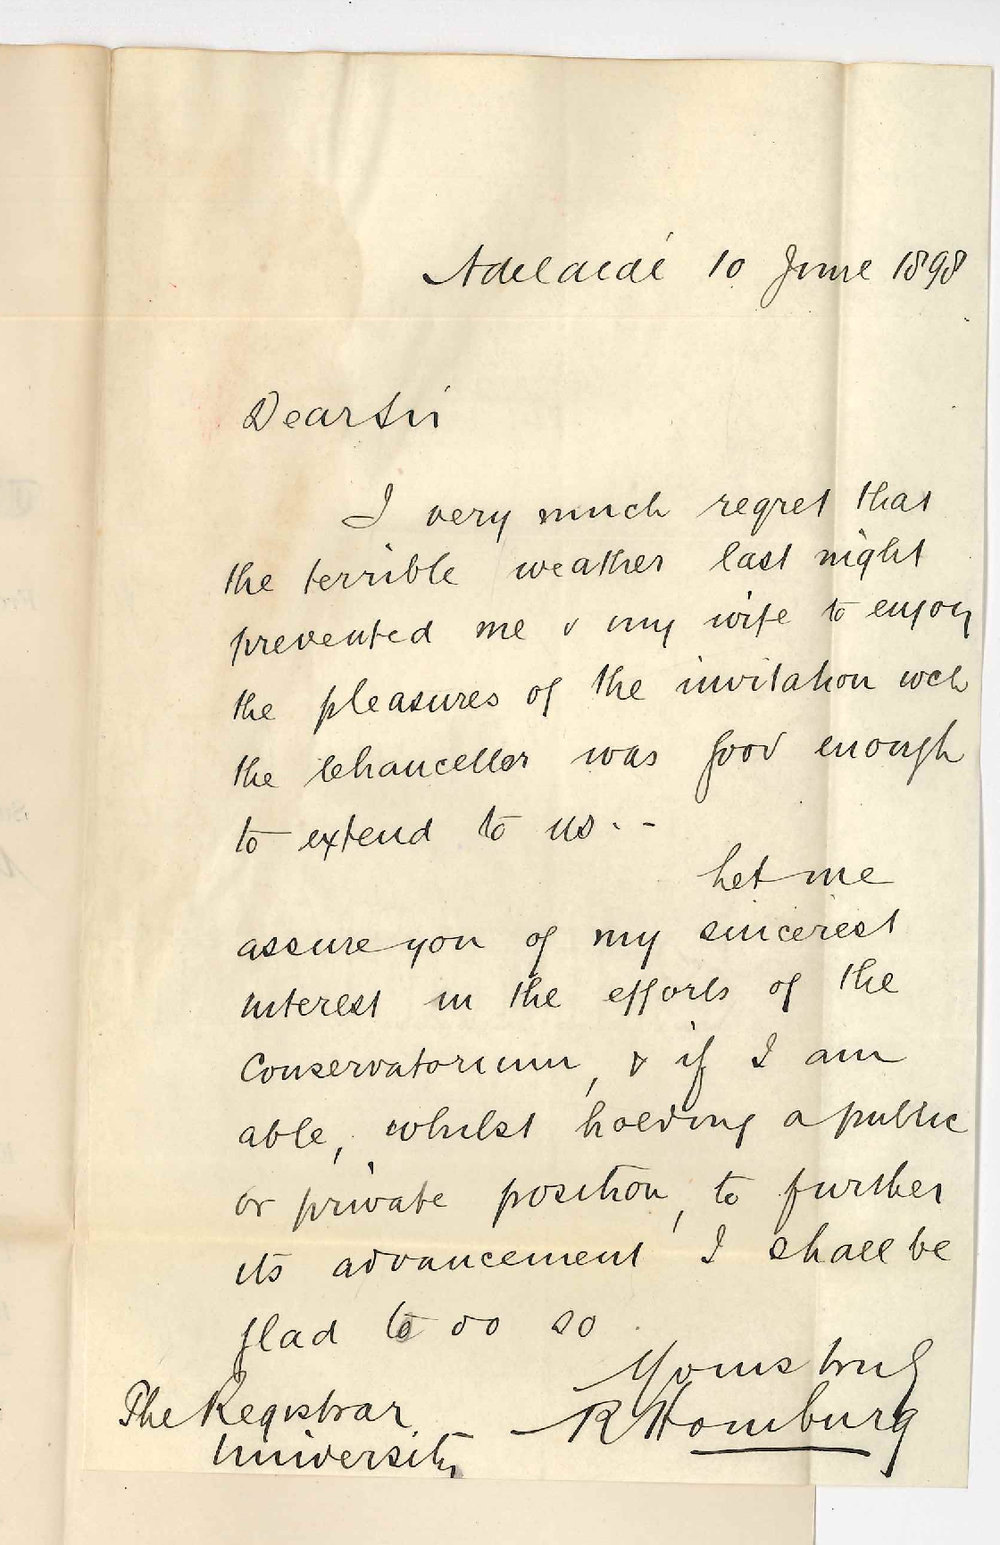 Adelaide 10 June 1898
Dear Sir
I very much regret that
the terrible weather last night
prevented me & my wife to enjoy
the pleasures of the invitation wch
the Chancellor was good enough
to extend to us. -
Let me
assure you of my sincerest
interest in the efforts of the
Conservatorium, & if I am
able, whilst holding a public
or private position, to further
its advancement I shall be
glad to do so
Yours truly
R Homburg
The Registrar
University